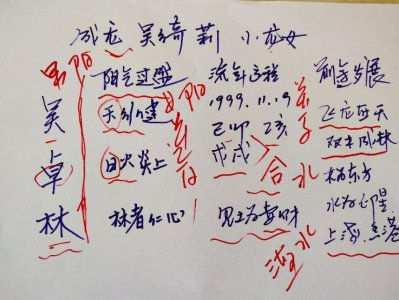 成龙 吴绮莉 小龙女
吴卓林
男阳
阳气过盛
天行健
日火炎上
林者仁心
女阴
流年运程
1999.11.19
己卯 乙亥
戊戌
合
水
见土为喜财
海水
前途发展
飞龙在天
双木成林
木为东方
水为
上海.香港